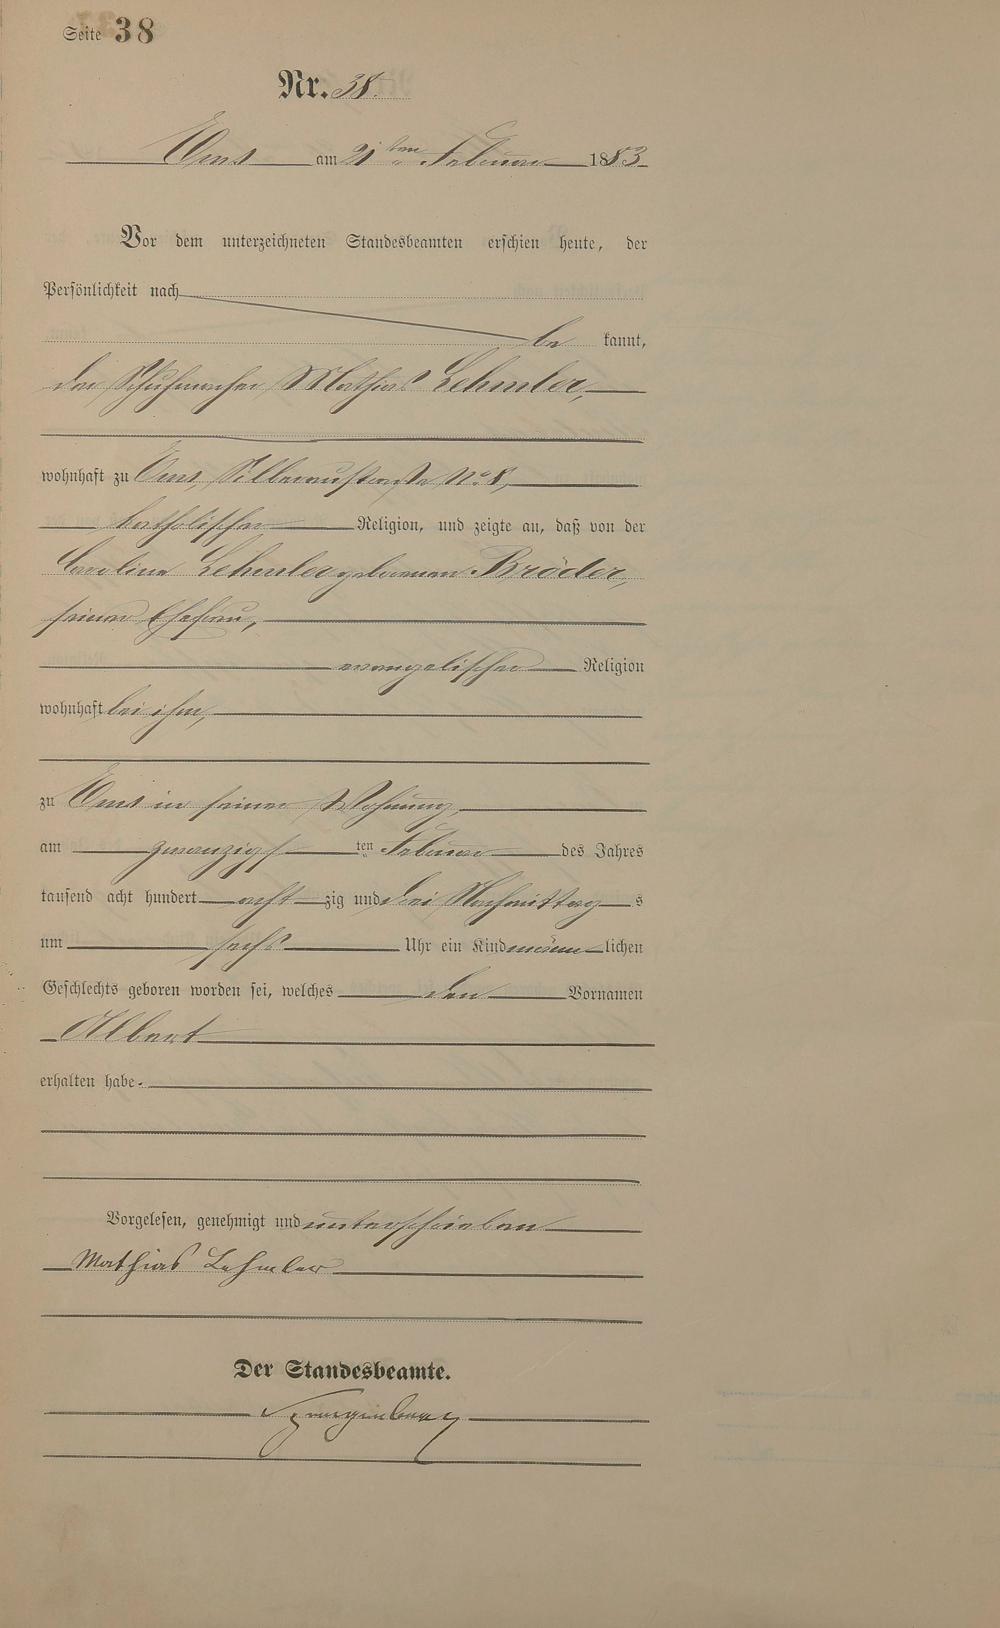 Seite 38
Nr. 38.
Ems am 21ten Februar 1883
Vor dem unterzeichneten Standesbeamten erschien heute, der
Persönlichkeit nach
be kannt,
der Schuhmacher Mathias Lehmler,
wohnhaft zu Ems, Silberaustraße No. 8,
katholischer Religion, und zeigte an, daß von der
Caroline Lehmler geborenen Bröder,
seiner Ehefrau,
evangelischer Religion
wohnhaft bei ihm,
zu Ems in seiner Wohnung,
am zwanzigsten Februar des Jahres
tausend acht hundert acht zig und drei Nachmittag s
um sechs Uhr ein Kind männlichen
Geschlechts geboren worden sei, welches den Vornamen
Albert
erhalten habe.
Vorgelesen, genehmigt und unterschrieben
Mathias Lehmler
Der Standesbeamte.